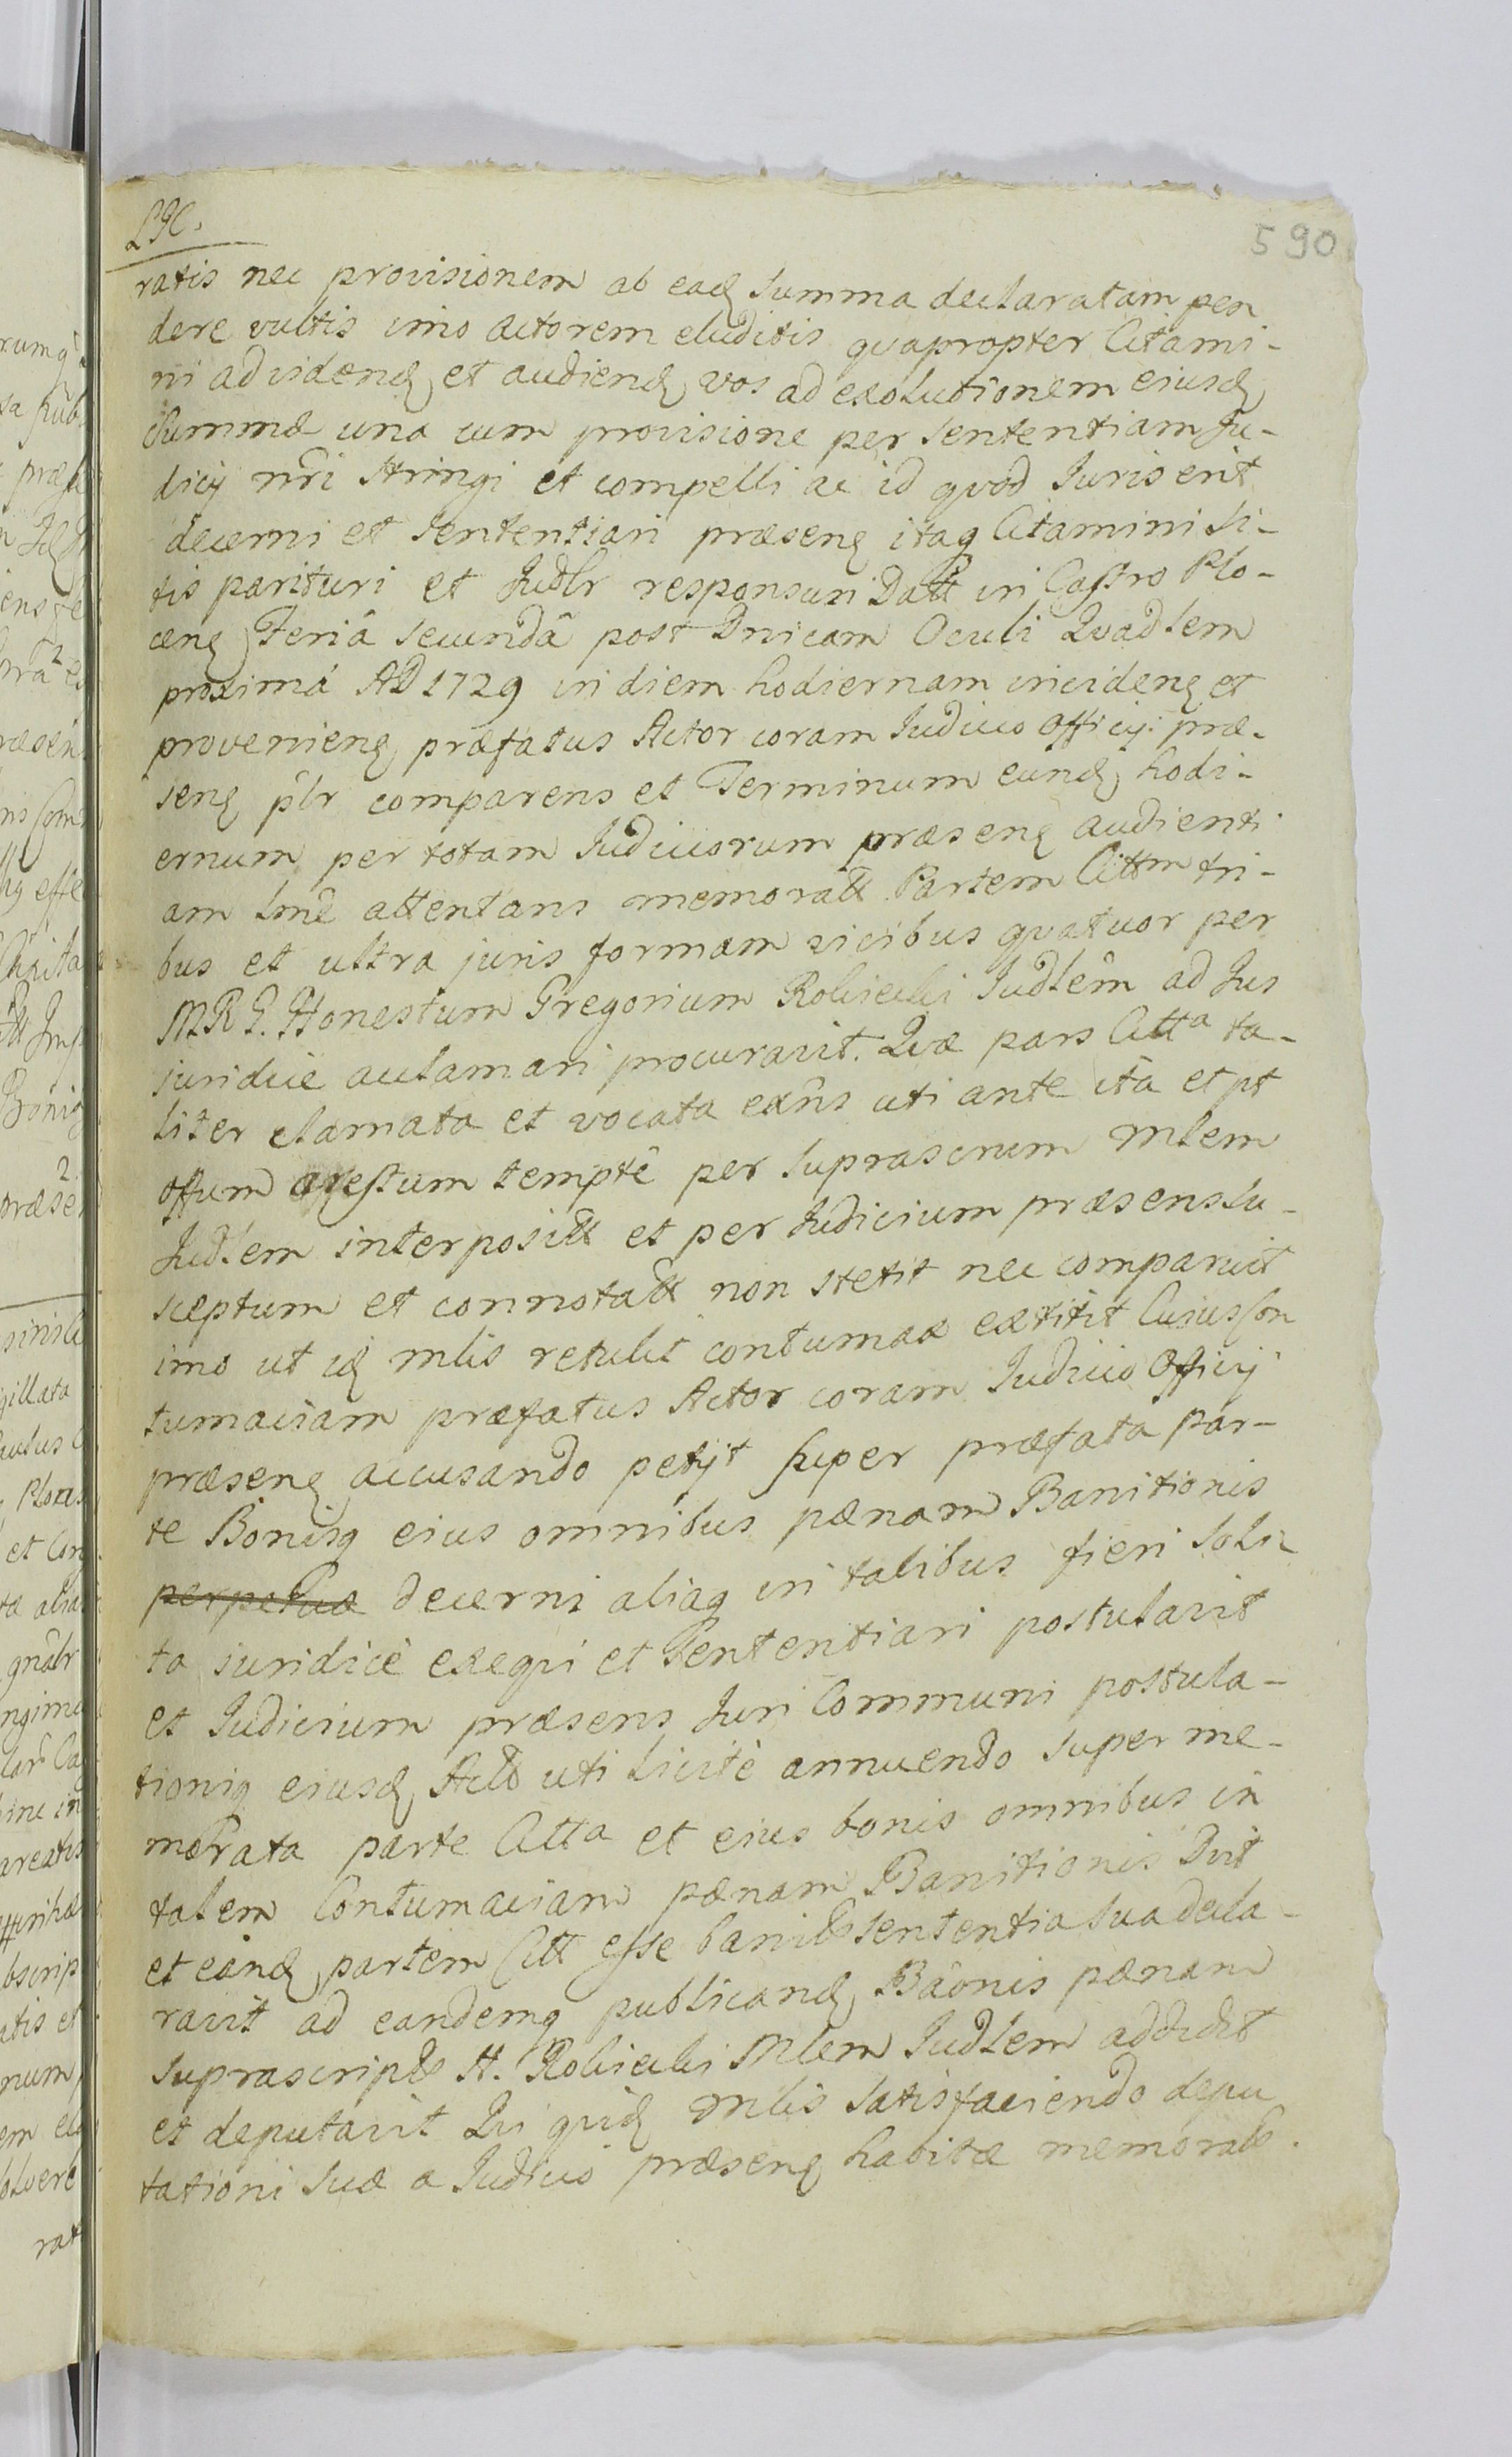 590
ratis nec provisionem ab eadꝫ summa declaratam pen
dere vultis imo Actorem eluditis qvapropter Citami-
ni ad videndꝫ et audiendꝫ vos ad exolutionem eiusdꝫ
Summæ una cum provisione per Sententiam Ju-
dicij nr̃i stringi et compelli ac id qvod Juris erit
decerni et sententiari præsenꝫ itaq Citamini si-
tis parituri et Judlr responsuri Datt in Castro Plo-
cenꝫ Feriâ secundâ post Dnicam Oculi Qvadlem
proximâ AD 1729 in diem hodiernam incidenꝫ et
provenienꝫ præfatus Actor coram Judicio Officij præ-
senꝫ plr comparens et Terminum eundꝫ hodi-
ernum per totam Judiciorum præsenꝫ audienti-
am lmê attentans memoratt Partem Cittm tri-
bus et ultra juris formam vicibus qvatuor per
MRG. Honestum Gregorium Robicki Judlem ad Jus
juridicè acclamari procuravit. Qvæ pars Citta ta-
liter clamata et vocata exñs uti ante ita et pt
offum arestum tempte per suprascrum Mlem
Judlem interpositt et per Judicium præsens su-
sceptum et connotatt non stetit nec comparuit
imo ut idꝫ Mlis retulit contumax extitit Cuius Con
tumaciam præfatus Actor coram Judicio Officij
præsenꝫ accusando petijt super præfata par-
te Bonisq eius omnibus pænam Banitionis
perpetuæ decerni aliaq in talibus fieri soli-
ta juridicè exeqvi et Sententiari postulavit
et Judicium præsens Juri Communi postula-
tioniq eiusdꝫ Actõ uti licitè annuendo super me-
morata parte Citta et eius bonis omnibus in
talem Contumaciam pænam Banitionis Dvit
et eandꝫ partem Citt esse banitt sententia sua decla-
ravit ad eandemq publicandꝫ Bãonis pænam
suprascriptt H. Robicki Mlem Judlem addidit
et deputavit Qvi qvidꝫ Mlis satisfaciendo depu
tationi suæ a Judicio præsenꝫ habitæ memoratt